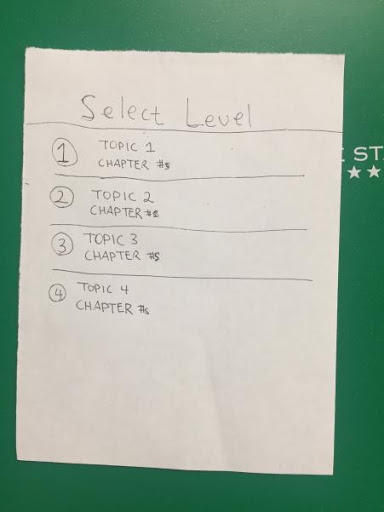 Select Level
1 TOPIC 1
CHAPTER #s
2 TOPIC 2
CHAPTER #s
3 TOPIC 3
CHAPTER #s
4 TOPIC 4
CHAPTER #s
E STA
★★